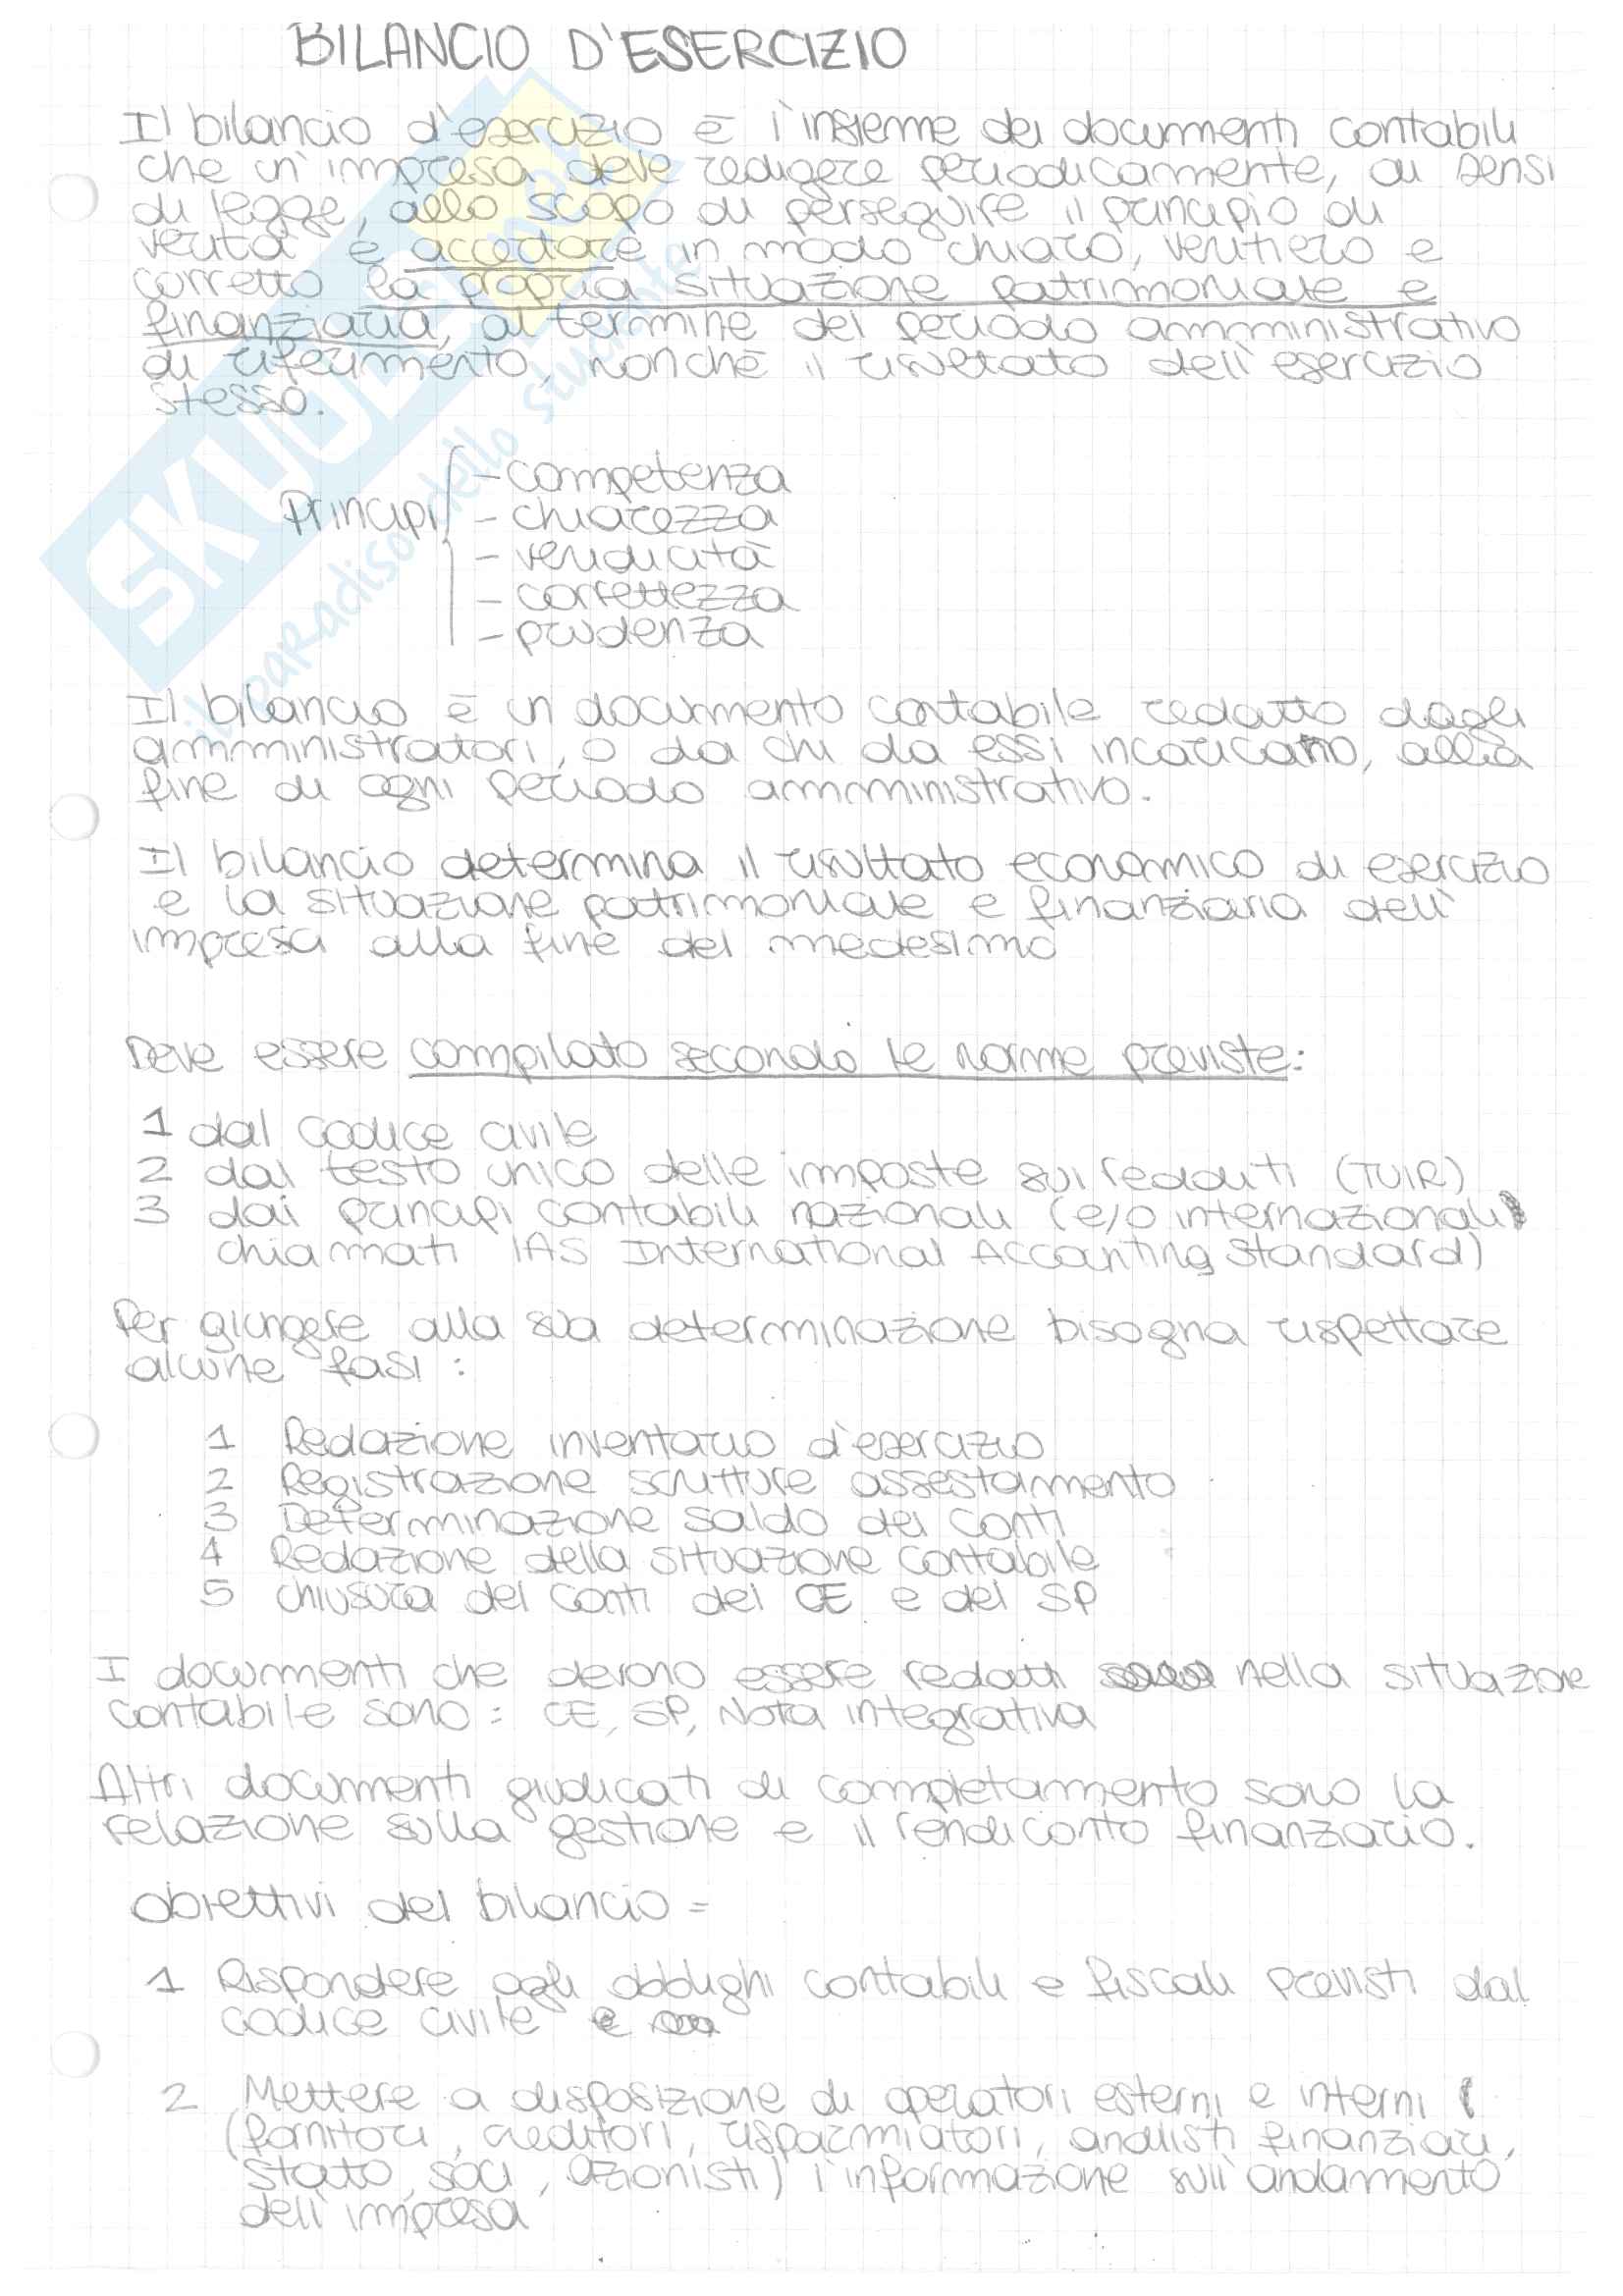 BILANCIO D'ESERCIZIO
Il bilancio d'esercizio è l'insieme dei documenti contabili
che un'impresa deve redigere periodicamente, ai sensi
di legge, allo scopo di perseguire il principio di
verità e accertare in modo chiaro, veritiero e
corretto la propria situazione patrimoniale e
finanziaria, al termine del periodo amministrativo
di riferimento, nonchè il risultato dell'esercizio
stesso.
Principi
- competenza
- chiarezza
- veridicità
- correttezza
- prudenza
Il bilancio è un documento contabile redatto dagli
amministratori, o da chi da essi incaricano, alla
fine di ogni periodo amministrativo.
Il bilancio determina il risultato economico di esercizio
e la situazione patrimoniale e finanziaria dell'
impresa alla fine del medesimo
Deve essere compilato secondo le norme previste:
1 dal codice civile
2 dal testo unico delle imposte sui redditi (TUIR)
3 dai principi contabili nazionali (e/o internazionali
chiamati IAS International Accounting Standard)
Per giungere alla sua determinazione bisogna rispettare
alcune fasi:
1 Redazione inventario d'esercizio
2 Registrazione scritture assestamento
3 Determinazione saldo dei conti
4 Redazione della situazione contabile
5 chiusura dei conti del CE e del SP
I documenti che devono essere redatti nella situazione
contabile sono: CE, SP, Nota integrativa
Altri documenti giudicati di completamento sono la
relazione sulla gestione e il rendiconto finanziario.
obiettivi del bilancio =
1 Rispondere agli obblighi contabili e fiscali previsti dal
codice civile
2 Mettere a disposizione di operatori esterni e interni
(fornitori, creditori, risparmiatori, analisti finanziari,
stato, soci, azionisti) l'informazione sull'andamento
dell'impresa
SKUOLA.net
il paradiso dello studente